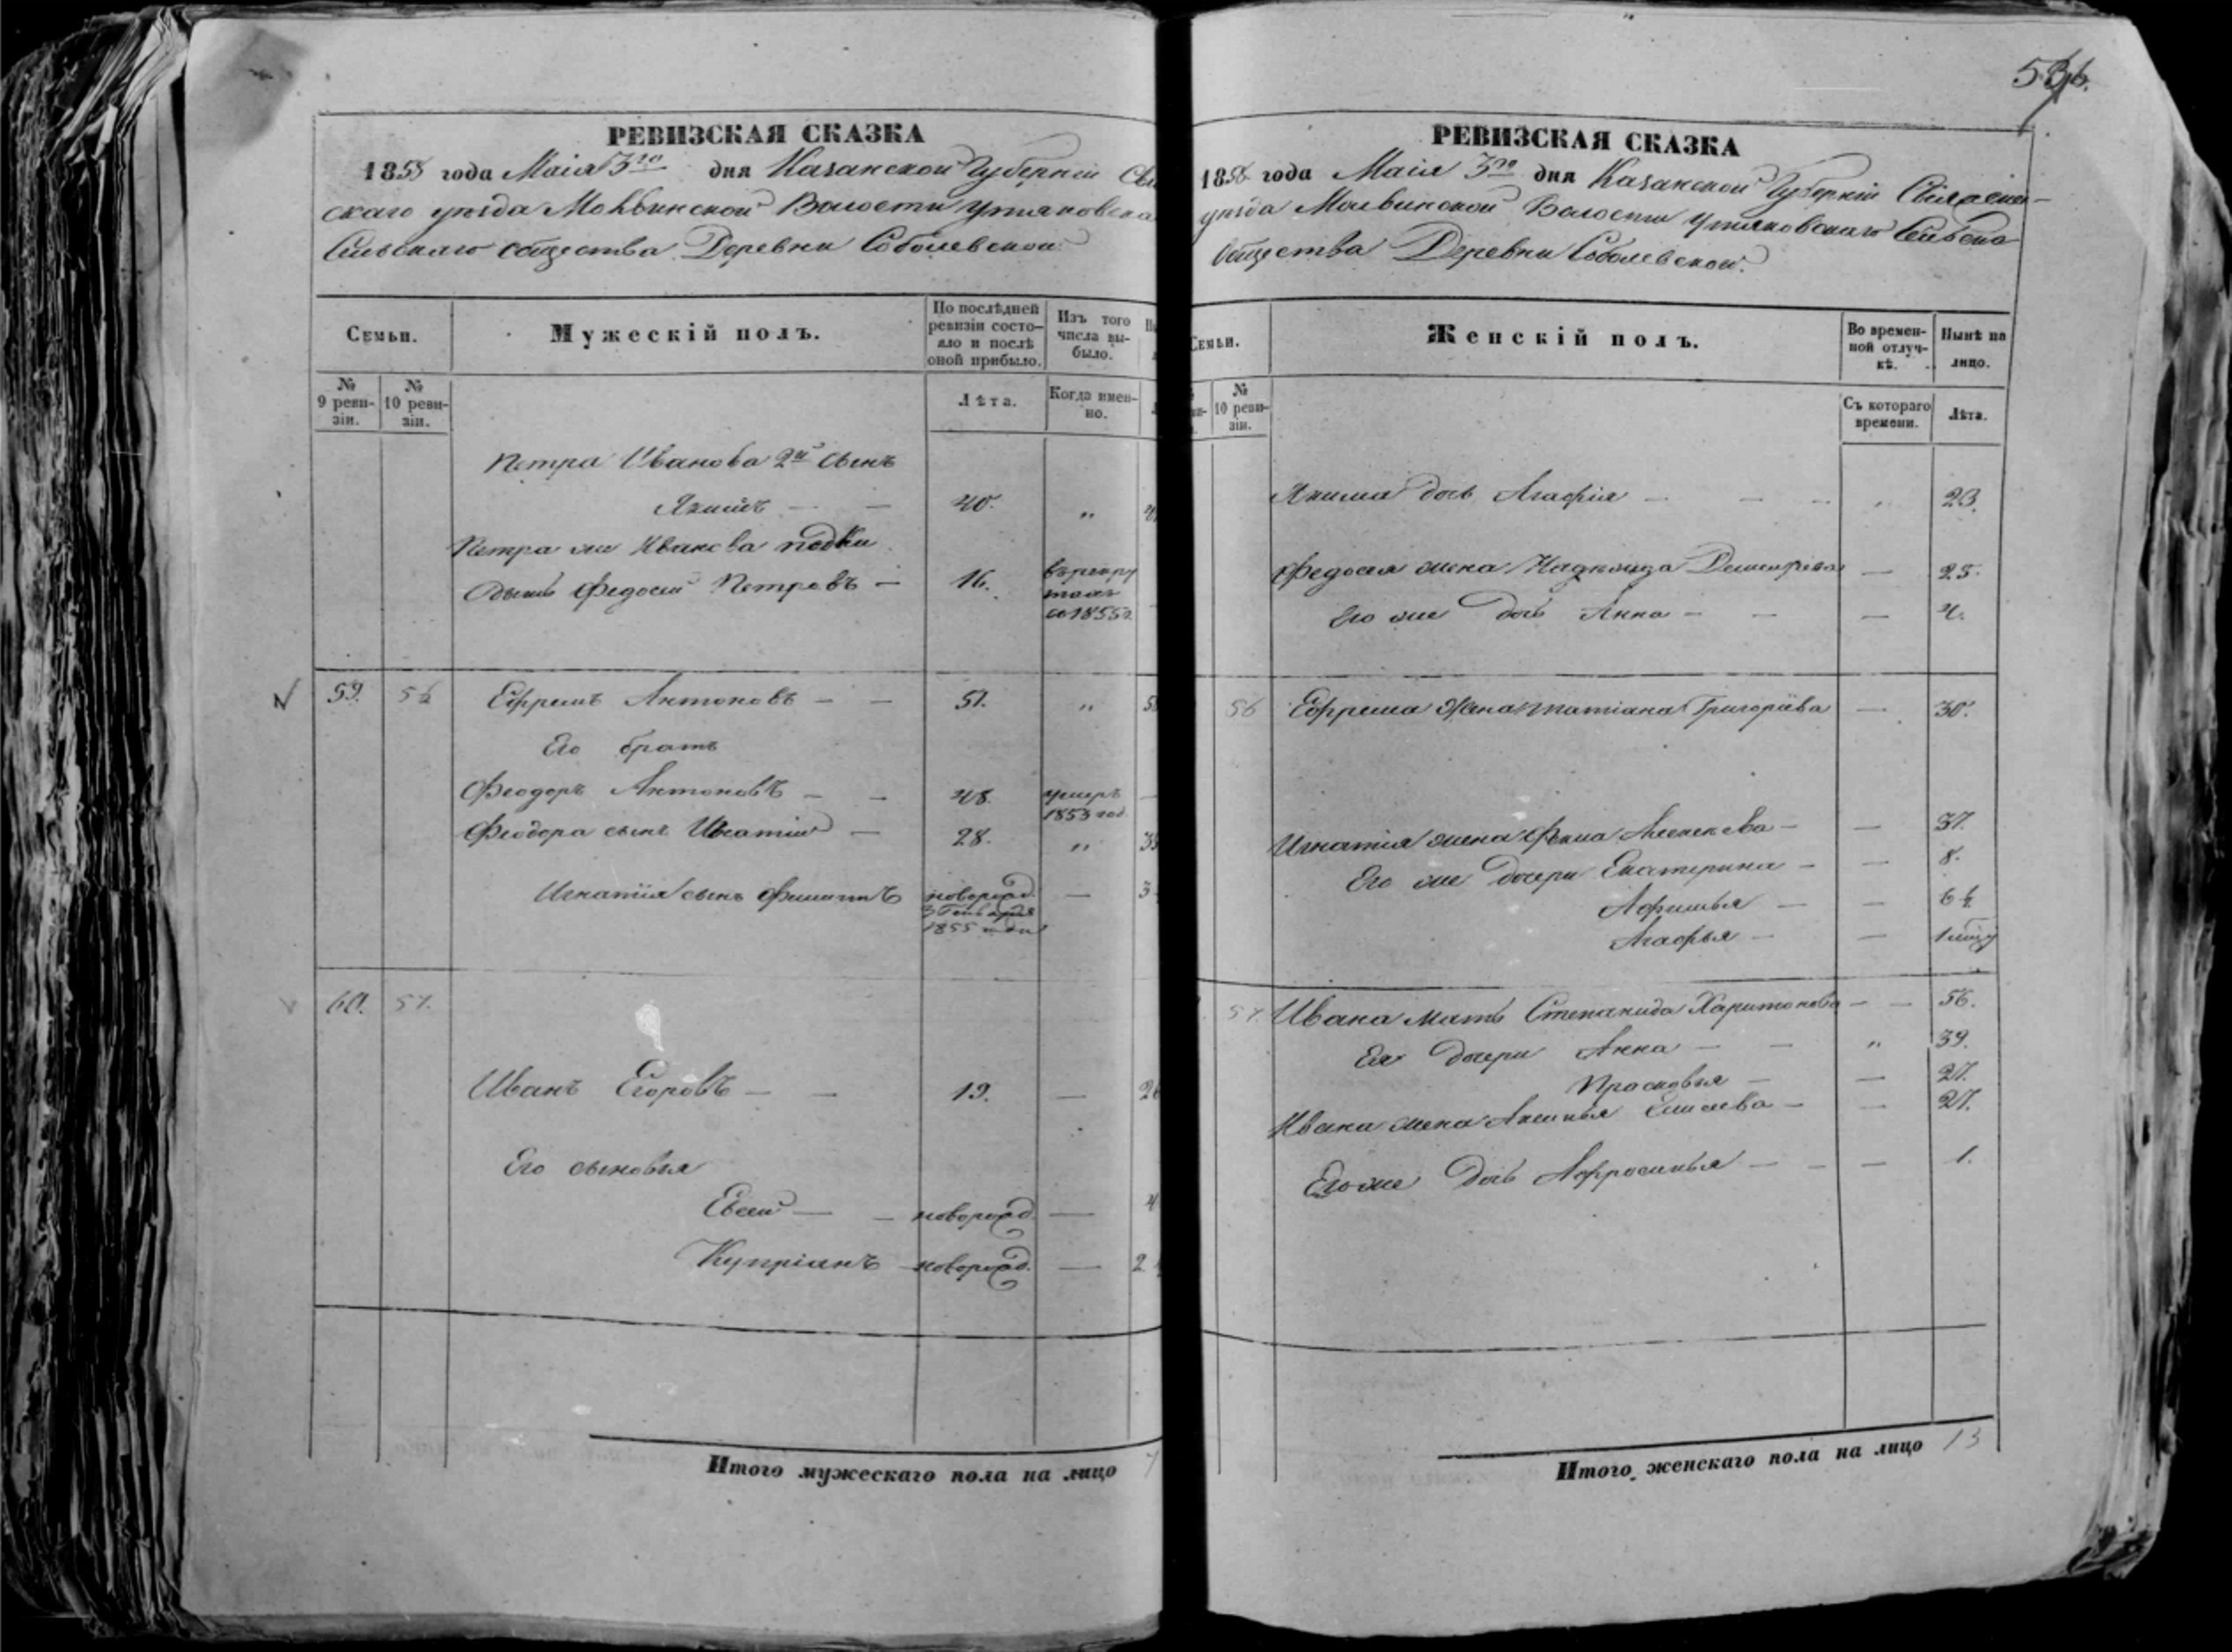 РЕВИЗСКАЯ СКАЗКА
1858 года Маія 3го дня Казанской Губерніи Сві
скаго уѣзда Молвинской Волости Утяковска
Сельскаго общества Деревни Соболевской
Семьи.
Мужескій полъ.
По послѣдней ревизіи состо-
яло и послѣ
оной прибыло.
Изъ того
числа вы-
было.
№
9 реви-
зіи.
№
10 реви-
зіи.
Лѣта.
Когда имен-
но.
Петра Иванова 2й сынъ
Якимъ — — 40. „
Петра же Иванова
Федосей Петровъ — 16.
1855г.
59. 56 Ефремъ Антоновъ — — 51. „
Его братъ
Феодоръ Антоновъ — — 48. умеръ
1853 год
Феодора сынъ Игнатій — 28. „
Игнатія сынъ Филатъ новорожд. —
3 Генваря
1855 года
60. 57.
Иванъ Егоровъ — — 19. —
Его сыновья
Евсей — — новорожд. — 4
Купріянъ новорожд. — 2
Итого мужескаго пола на лицо 7
536.
РЕВИЗСКАЯ СКАЗКА
1858 года Маія 3го дня Казанской Губерніи
уѣзда Молвинской Волости Утяковскаго Сельска
Общества Деревни Соболевской.
Семьи.
Женскій полъ.
Во времен-
ной отлуч-
кѣ.
Нынѣ на
лицо.
№
10 реви-
зіи.
Съ котораго
времени.
Лѣта.
Якима дочь Агафія — — — „ 23.
Федосея жена Надежда — 25.
Его же дочь Анна — — — 4.
56 Ефрема жена Татіана Григорьева — 30.
Игнатія жена Фекла Алексѣева — — 37.
Его же дочери Екатерина — — 8.
Афимья — — 6½
Агафья — —
57. Ивана мать Степанида Харитонова — — 56.
Ея дочери Анна — — „ 39.
Прасковья — — 27.
Ивана жена Аксинья — — 27.
Его же дочь Афросинья — — — 1.
Итого женскаго пола на лицо 13